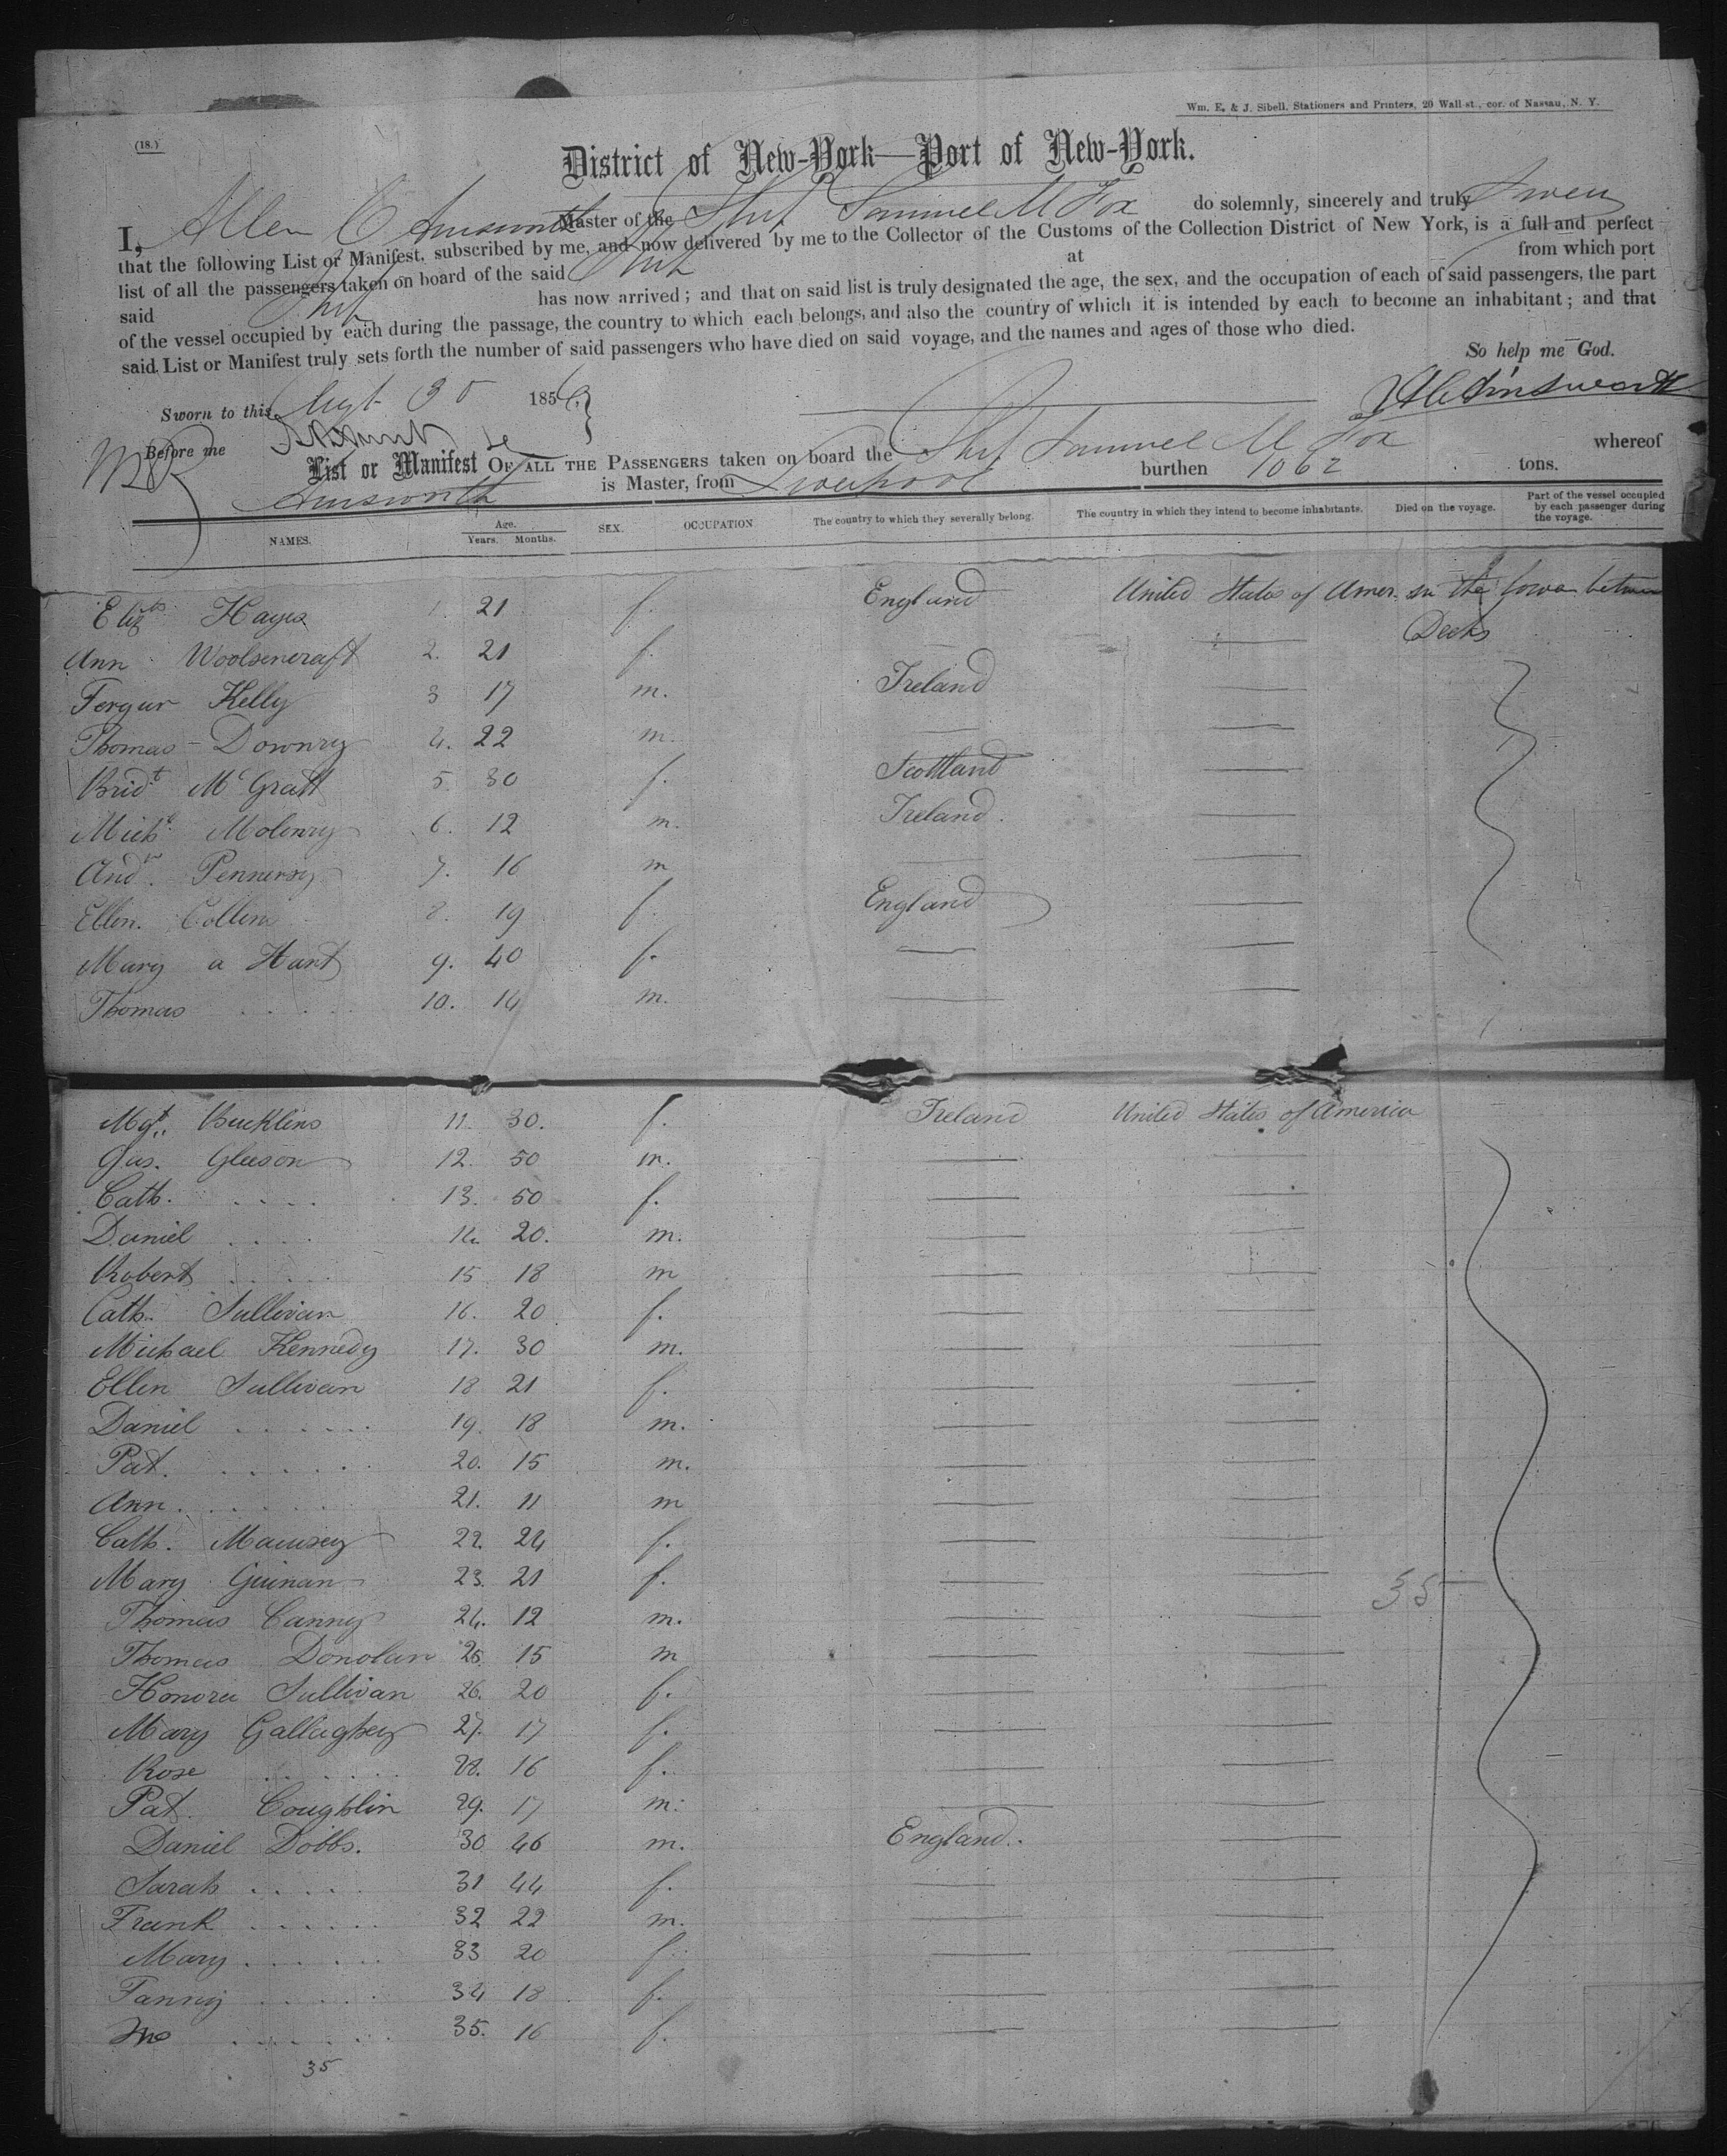 Wm. E. & J. Sibell, Stationers and Printers, 20 Wall-st., cor. of Nassau, N. Y.
(18.)
District of New-York—Port of New-York.
I, Allen C Ainsworth Master of the Ship Samuel M Fox do solemnly, sincerely and truly Swear
that the following List or Manifest, subscribed by me, and now delivered by me to the Collector of the Customs of the Collection District of New York, is a full and perfect
list of all the passengers taken on board of the said Ship at from which port
said Ship has now arrived; and that on said list is truly designated the age, the sex, and the occupation of each of said passengers, the part
of the vessel occupied by each during the passage, the country to which each belongs, and also the country of which it is intended by each to become an inhabitant; and that
said List or Manifest truly sets forth the number of said passengers who have died on said voyage, and the names and ages of those who died.
So help me God.
Sworn to this 30 185
A C Ainsworth
Before me
List or Manifest OF ALL THE PASSENGERS taken on board the Ship Samuel M Fox whereof
Ainsworth is Master, from Liverpool burthen 1062 tons.
NAMES. Age. Years. Months. SEX. OCCUPATION. The country to which they severally belong. The country in which they intend to become inhabitants. Died on the voyage. Part of the vessel occupied by each passenger during the voyage.
Elizth Hayes 1. 21 f. England United States of Amer. in the lower between
Decks
Ann Woolsencraft 2. 21 f. —
Fergus Kelly 3 17 m. Ireland —
Thomas Downry 4. 22 m. — —
Bridt McGratt 5. 30 f. Scottland —
Michl Molonry 6. 12 m. Ireland. —
Andw. Pennersy 7. 16 m — —
Ellen. Collins 8. 19 f. England —
Mary a Hant 9. 40 f. — —
Thomas . . . . . 10. 14 m. — —
Mgt. Bucklins 11. 30. f. Ireland United States of America
Jas. Gleeson 12. 50 m. — —
Cath. . . . . 13. 50 f. — —
Daniel . . . . 14. 20. m. — —
Robert . . . . . 15 18 m — —
Cath. Sullivan 16. 20 f. — —
Michael Kennedy 17. 30 m. — —
Ellen Sullivan 18 21 f. — —
Daniel . . . . . . 19. 18 m. — —
Pat. . . . . . . 20. 15 m. — —
Ann. . . . . . 21. 11 m — —
Cath. 22. 24 f. — —
Mary Guinan 23. 21 f. — — 35
Thomas Canny 24. 12 m. — —
Thomas Donolan 25. 15 m — —
Honora Sullivan 26. 20 f. — —
Mary Gallaghey 27. 17 f. — —
Rose . . . . . . 28. 16 f. — —
Pat. Coughlin 29. 17 m. — —
Daniel Dobbs. 30 46 m. England. —
Sarah . . . . . 31 44 f. — —
Frank . . . . . . 32 22 m. — —
Mary . . . . . . 33 20 f. — —
Fanny . . . . . 34 18 f. — —
. . . . . . 35. 16 f. — —
35